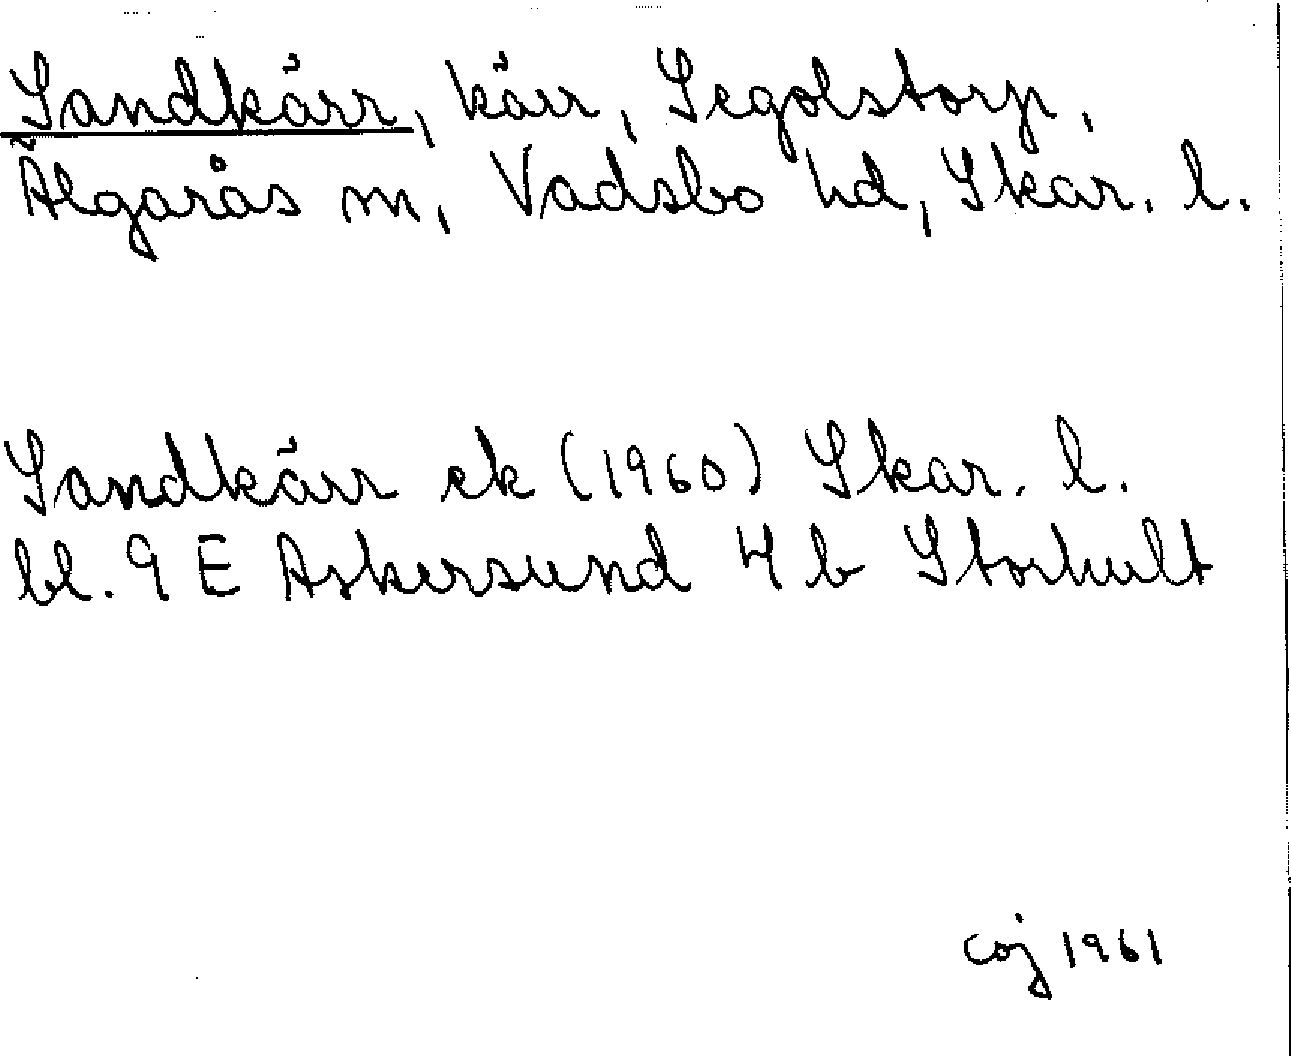 Sandkärr, kärr, Segolstorp,
Älgarås sn, Vadsbo hd, Skar. l.
Sandkärr ek (1960) Skar. l.
bl. 9 E Askersund 4 b Storhult
coj 1961